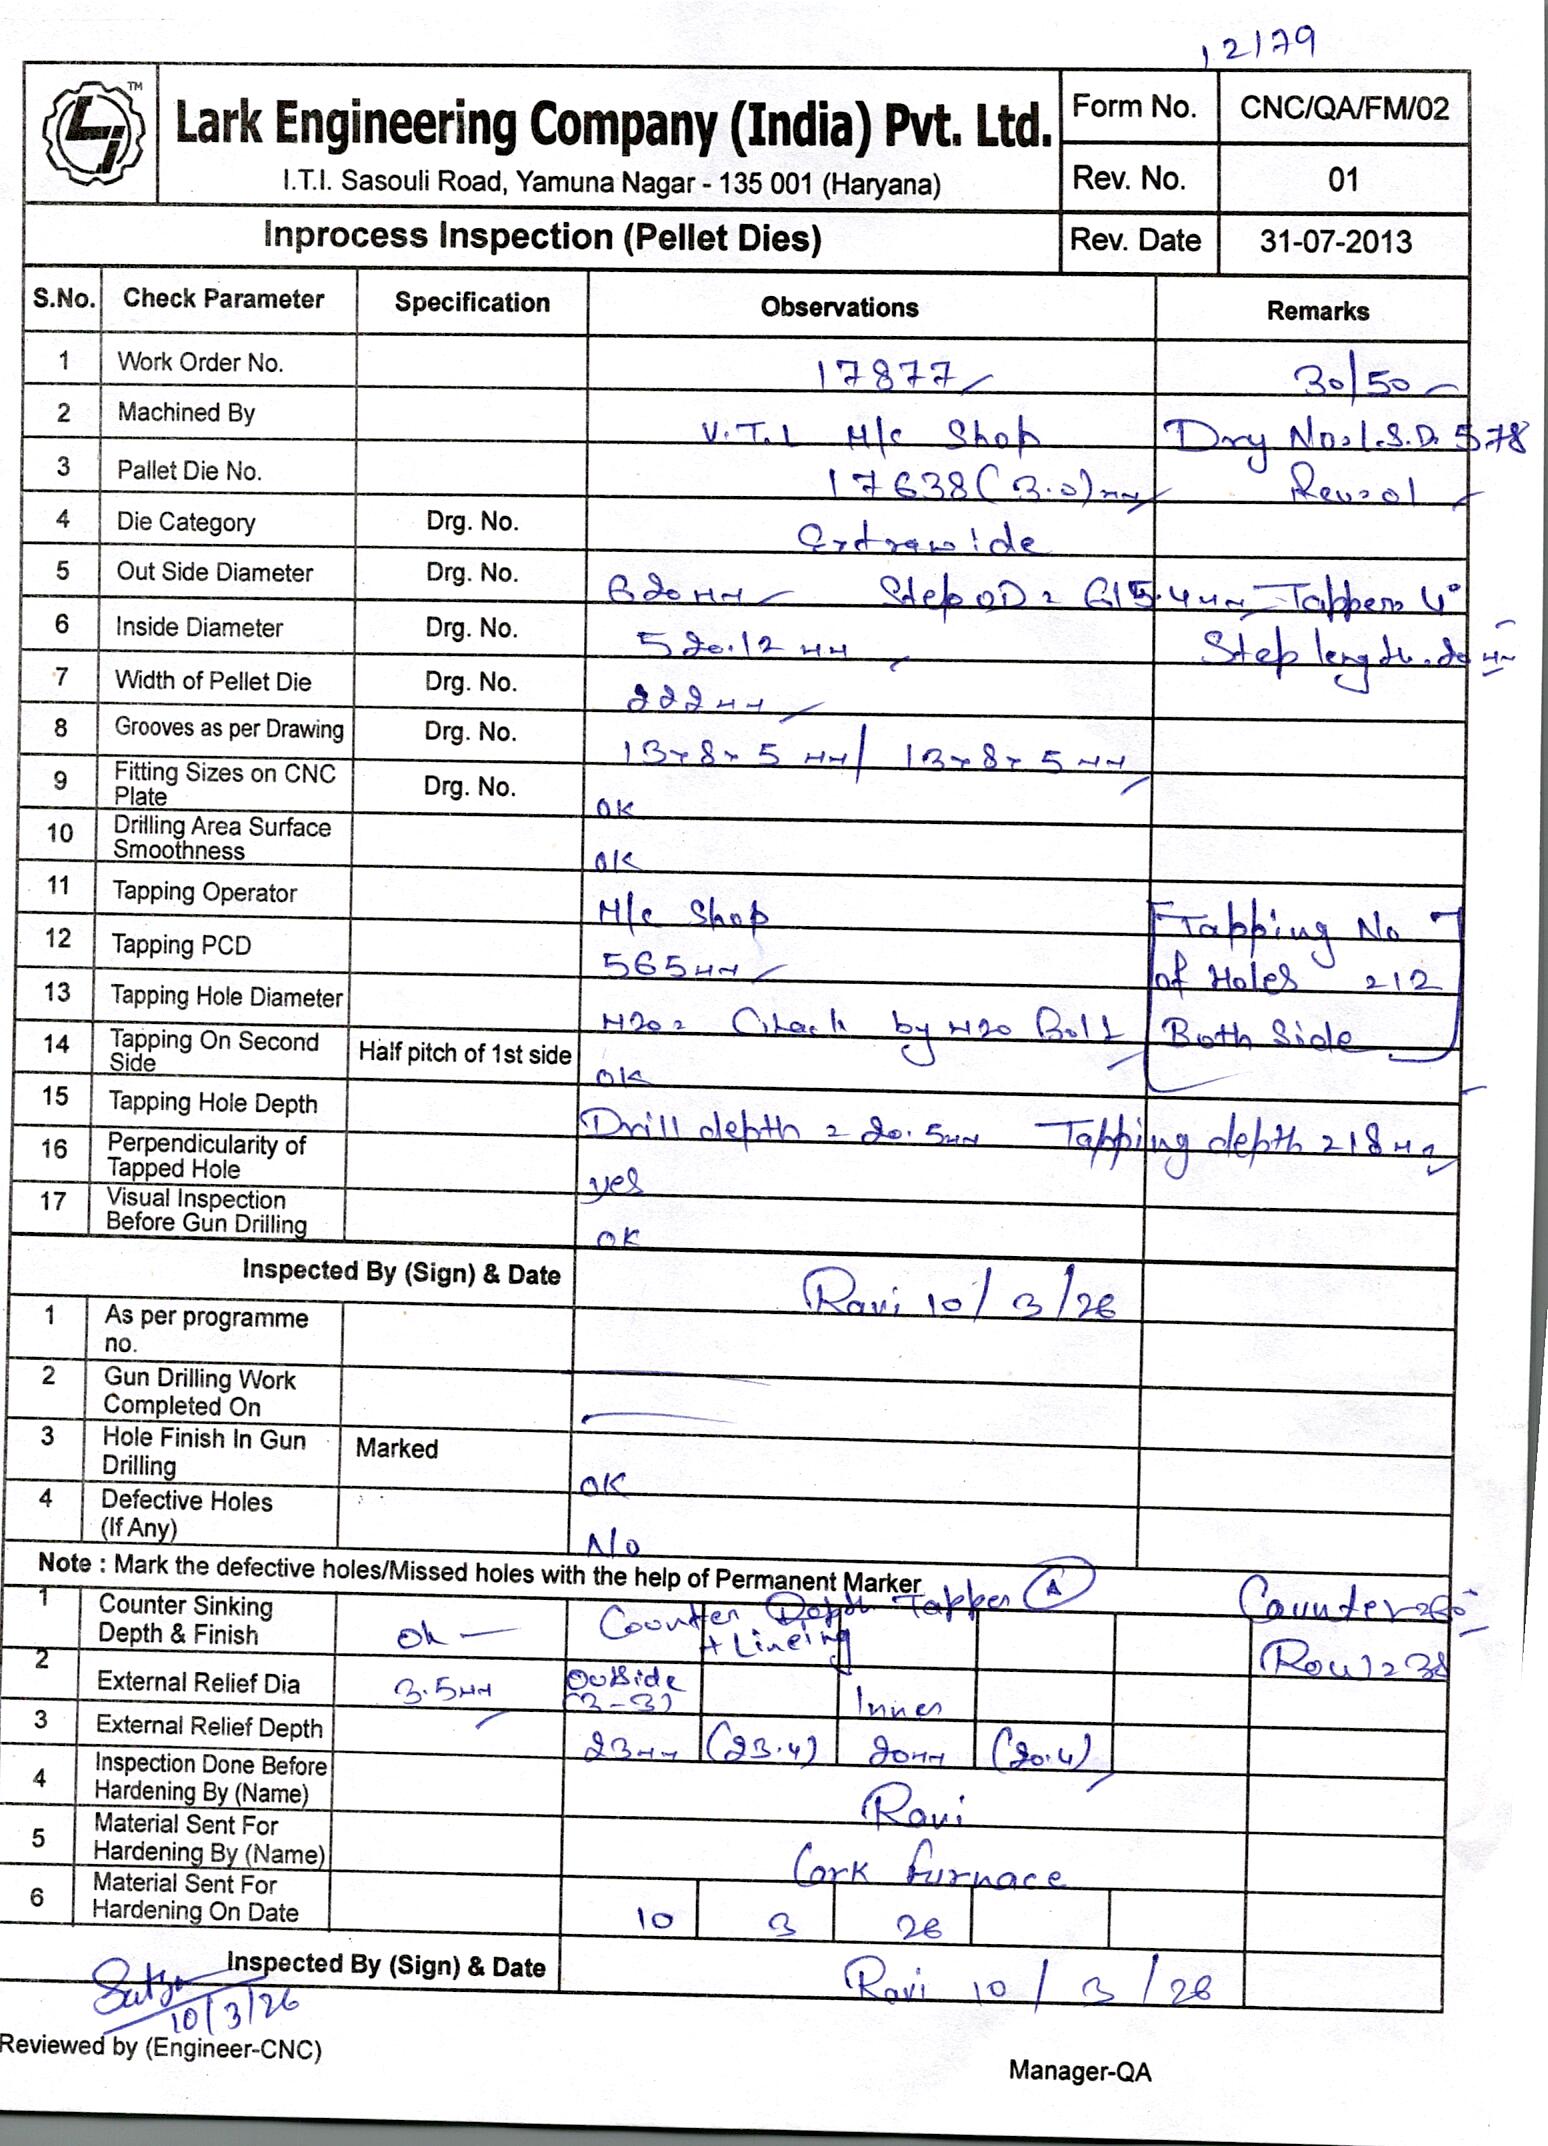 12179
TM
Lark Engineering Company (India) Pvt. Ltd.
I.T.I. Sasouli Road, Yamuna Nagar - 135 001 (Haryana)
Form No. CNC/QA/FM/02
Rev. No. 01
Inprocess Inspection (Pellet Dies) Rev. Date 31-07-2013
S.No. Check Parameter Specification Observations Remarks
1 Work Order No. 17877 30/50
2 Machined By V.T.L M/c Shop Drg No. L.S.D. 578
3 Pallet Die No. 17638 (3.0) mm Rev=01
4 Die Category Drg. No. Extrawide
5 Out Side Diameter Drg. No. 620 mm Step OD = 615.4 mm Tapper 4°
6 Inside Diameter Drg. No. 520.12 mm Step length. 20 mm
7 Width of Pellet Die Drg. No. 222 mm
8 Grooves as per Drawing Drg. No. 13x8x5 mm / 13x8x5 mm
9 Fitting Sizes on CNC Plate Drg. No. OK
10 Drilling Area Surface Smoothness OK
11 Tapping Operator M/c Shop Tapping No
12 Tapping PCD 565 mm of Holes = 12
13 Tapping Hole Diameter M20 = Check by M20 Bolt Both Side
14 Tapping On Second Side Half pitch of 1st side OK
15 Tapping Hole Depth Drill depth = 20.5 mm Tapping depth = 18 mm
16 Perpendicularity of Tapped Hole yes
17 Visual Inspection Before Gun Drilling OK
Inspected By (Sign) & Date Ravi 10/3/26
1 As per programme no.
2 Gun Drilling Work Completed On
3 Hole Finish In Gun Drilling Marked OK
4 Defective Holes (If Any) No
Note : Mark the defective holes/Missed holes with the help of Permanent Marker
1 Counter Sinking Depth & Finish Ok Counter Depth Tapper A Counter = 60°
Row = 38
2 External Relief Dia 3.5 mm Outside (3-3) Inner
3 External Relief Depth 23 mm (23.4) 20 mm (20.4)
4 Inspection Done Before Hardening By (Name) Ravi
5 Material Sent For Hardening By (Name) Furnace
6 Material Sent For Hardening On Date 10 3 26
Inspected By (Sign) & Date Ravi 10/3/26
10/3/26
Reviewed by (Engineer-CNC)
Manager-QA